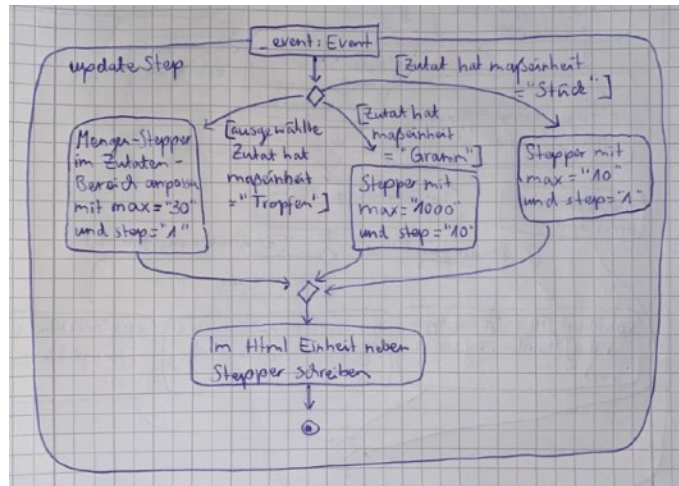 _event: Event
updateStep
[Zutat hat maßeinheit
="Stück"]
[ausgewählte
Zutat hat
maßeinheit
="Tropfen"]
[Zutat hat
maßeinheit
="Gramm"]
Mengen-Stepper
im Zutaten-
Bereich anpassen
mit max="30"
und step="1"
Stepper mit
max="1000"
und step="10"
Stepper mit
max="10"
und step="1"
Im Html Einheit neben
Stepper schreiben